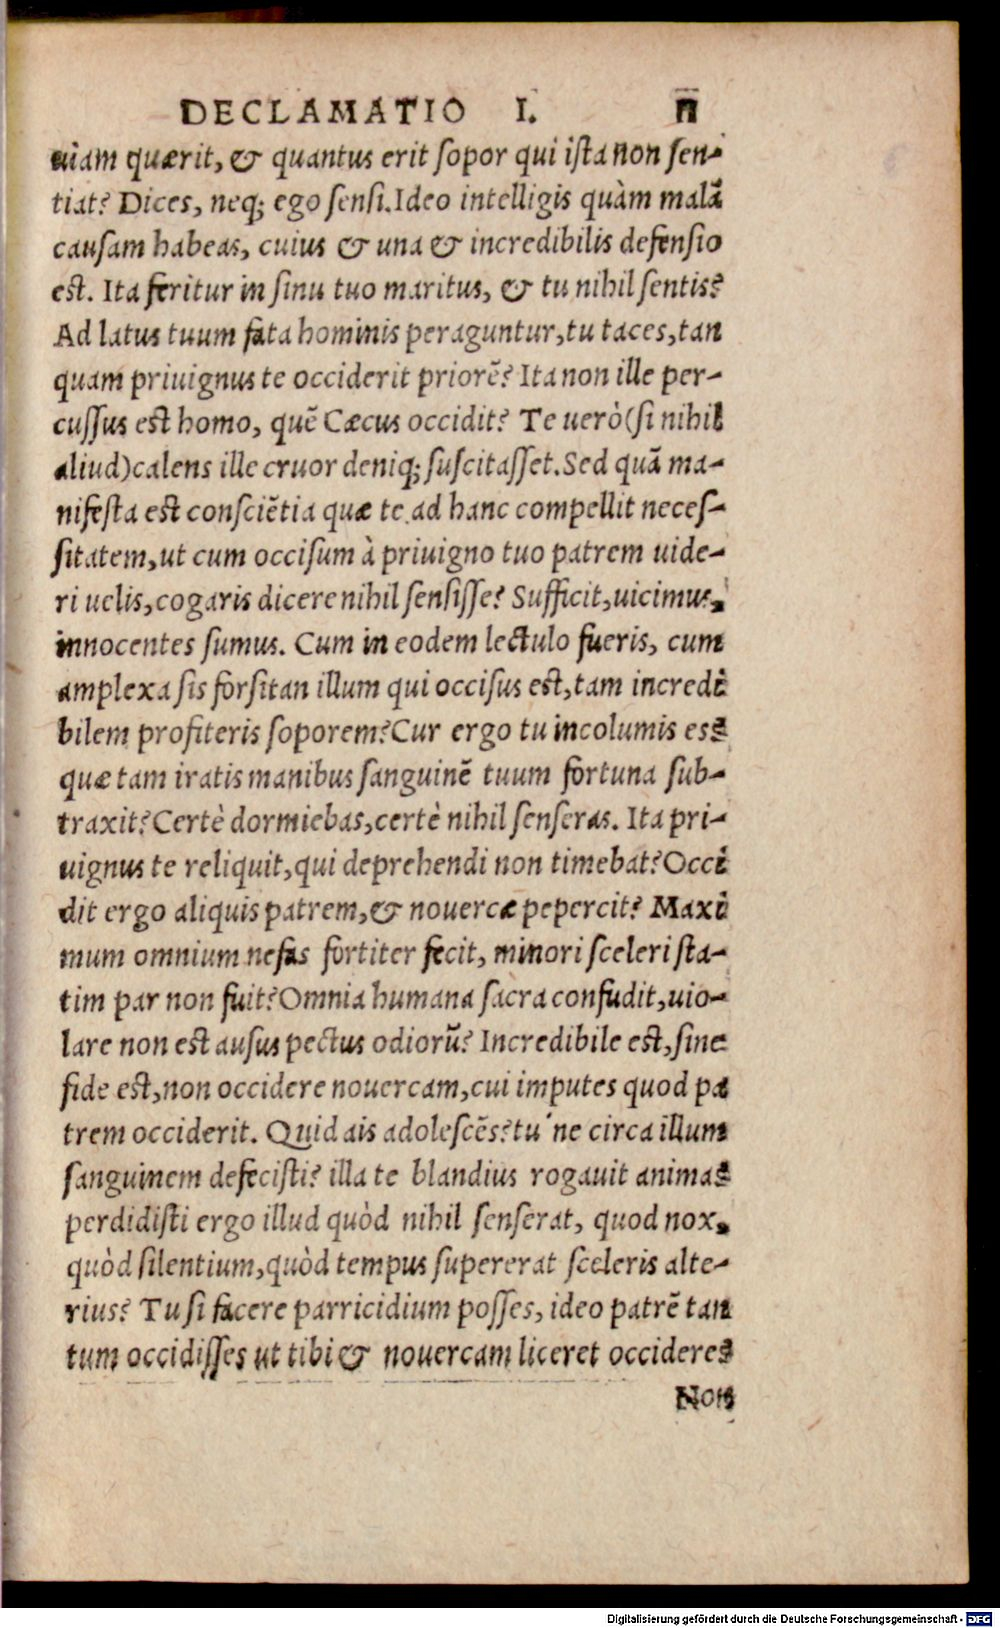 DECLAMATIO I. 11
uiam quærit, & quantus erit sopor qui ista non sen-
tiat? Dices, neq; ego sensi. Ideo intelligis quàm malã
causam habeas, cuius & una & incredibilis defensio
est. Ita feritur in sinu tuo maritus, & tu nihil sentis?
Ad latus tuum fata hominis peraguntur, tu taces, tan
quam priuignus te occiderit priorẽ? Ita non ille per-
cussus est homo, quẽ Cæcus occidit? Te uerò (si nihil
aliud) calens ille cruor deniq; suscitasset. Sed quã ma-
nifesta est consciẽtia quæ te ad hanc compellit neces-
sitatem, ut cum occisum à priuigno tuo patrem uide-
ri uelis, cogaris dicere nihil sensisse? Sufficit, uicimus,
innocentes sumus. Cum in eodem lectulo fueris, cum
amplexa sis forsitan illum qui occisus est, tam incredi
bilem profiteris soporem? Cur ergo tu incolumis es?
quæ tam iratis manibus sanguinẽ tuum fortuna sub-
traxit? Certè dormiebas, certè nihil senseras. Ita pri-
uignus te reliquit, qui deprehendi non timebat? Occi
dit ergo aliquis patrem, & nouercæ pepercit? Maxi
mum omnium nefas fortiter fecit, minori sceleri sta-
tim par non fuit? Omnia humana sacra confudit, uio-
lare non est ausus pectus odiorũ? Incredibile est, sine
fide est, non occidere nouercam, cui imputes quod pa
trem occiderit. Quid ais adolescẽs? tu ne circa illum
sanguinem defecisti? illa te blandius rogauit anima?
perdidisti ergo illud quòd nihil senserat, quod nox,
quòd silentium, quòd tempus supererat sceleris alte-
rius? Tu si facere parricidium posses, ideo patrẽ tan
tum occidisses ut tibi & nouercam liceret occidere?
Non
Digitalisierung gefördert durch die Deutsche Forschungsgemeinschaft - DFG